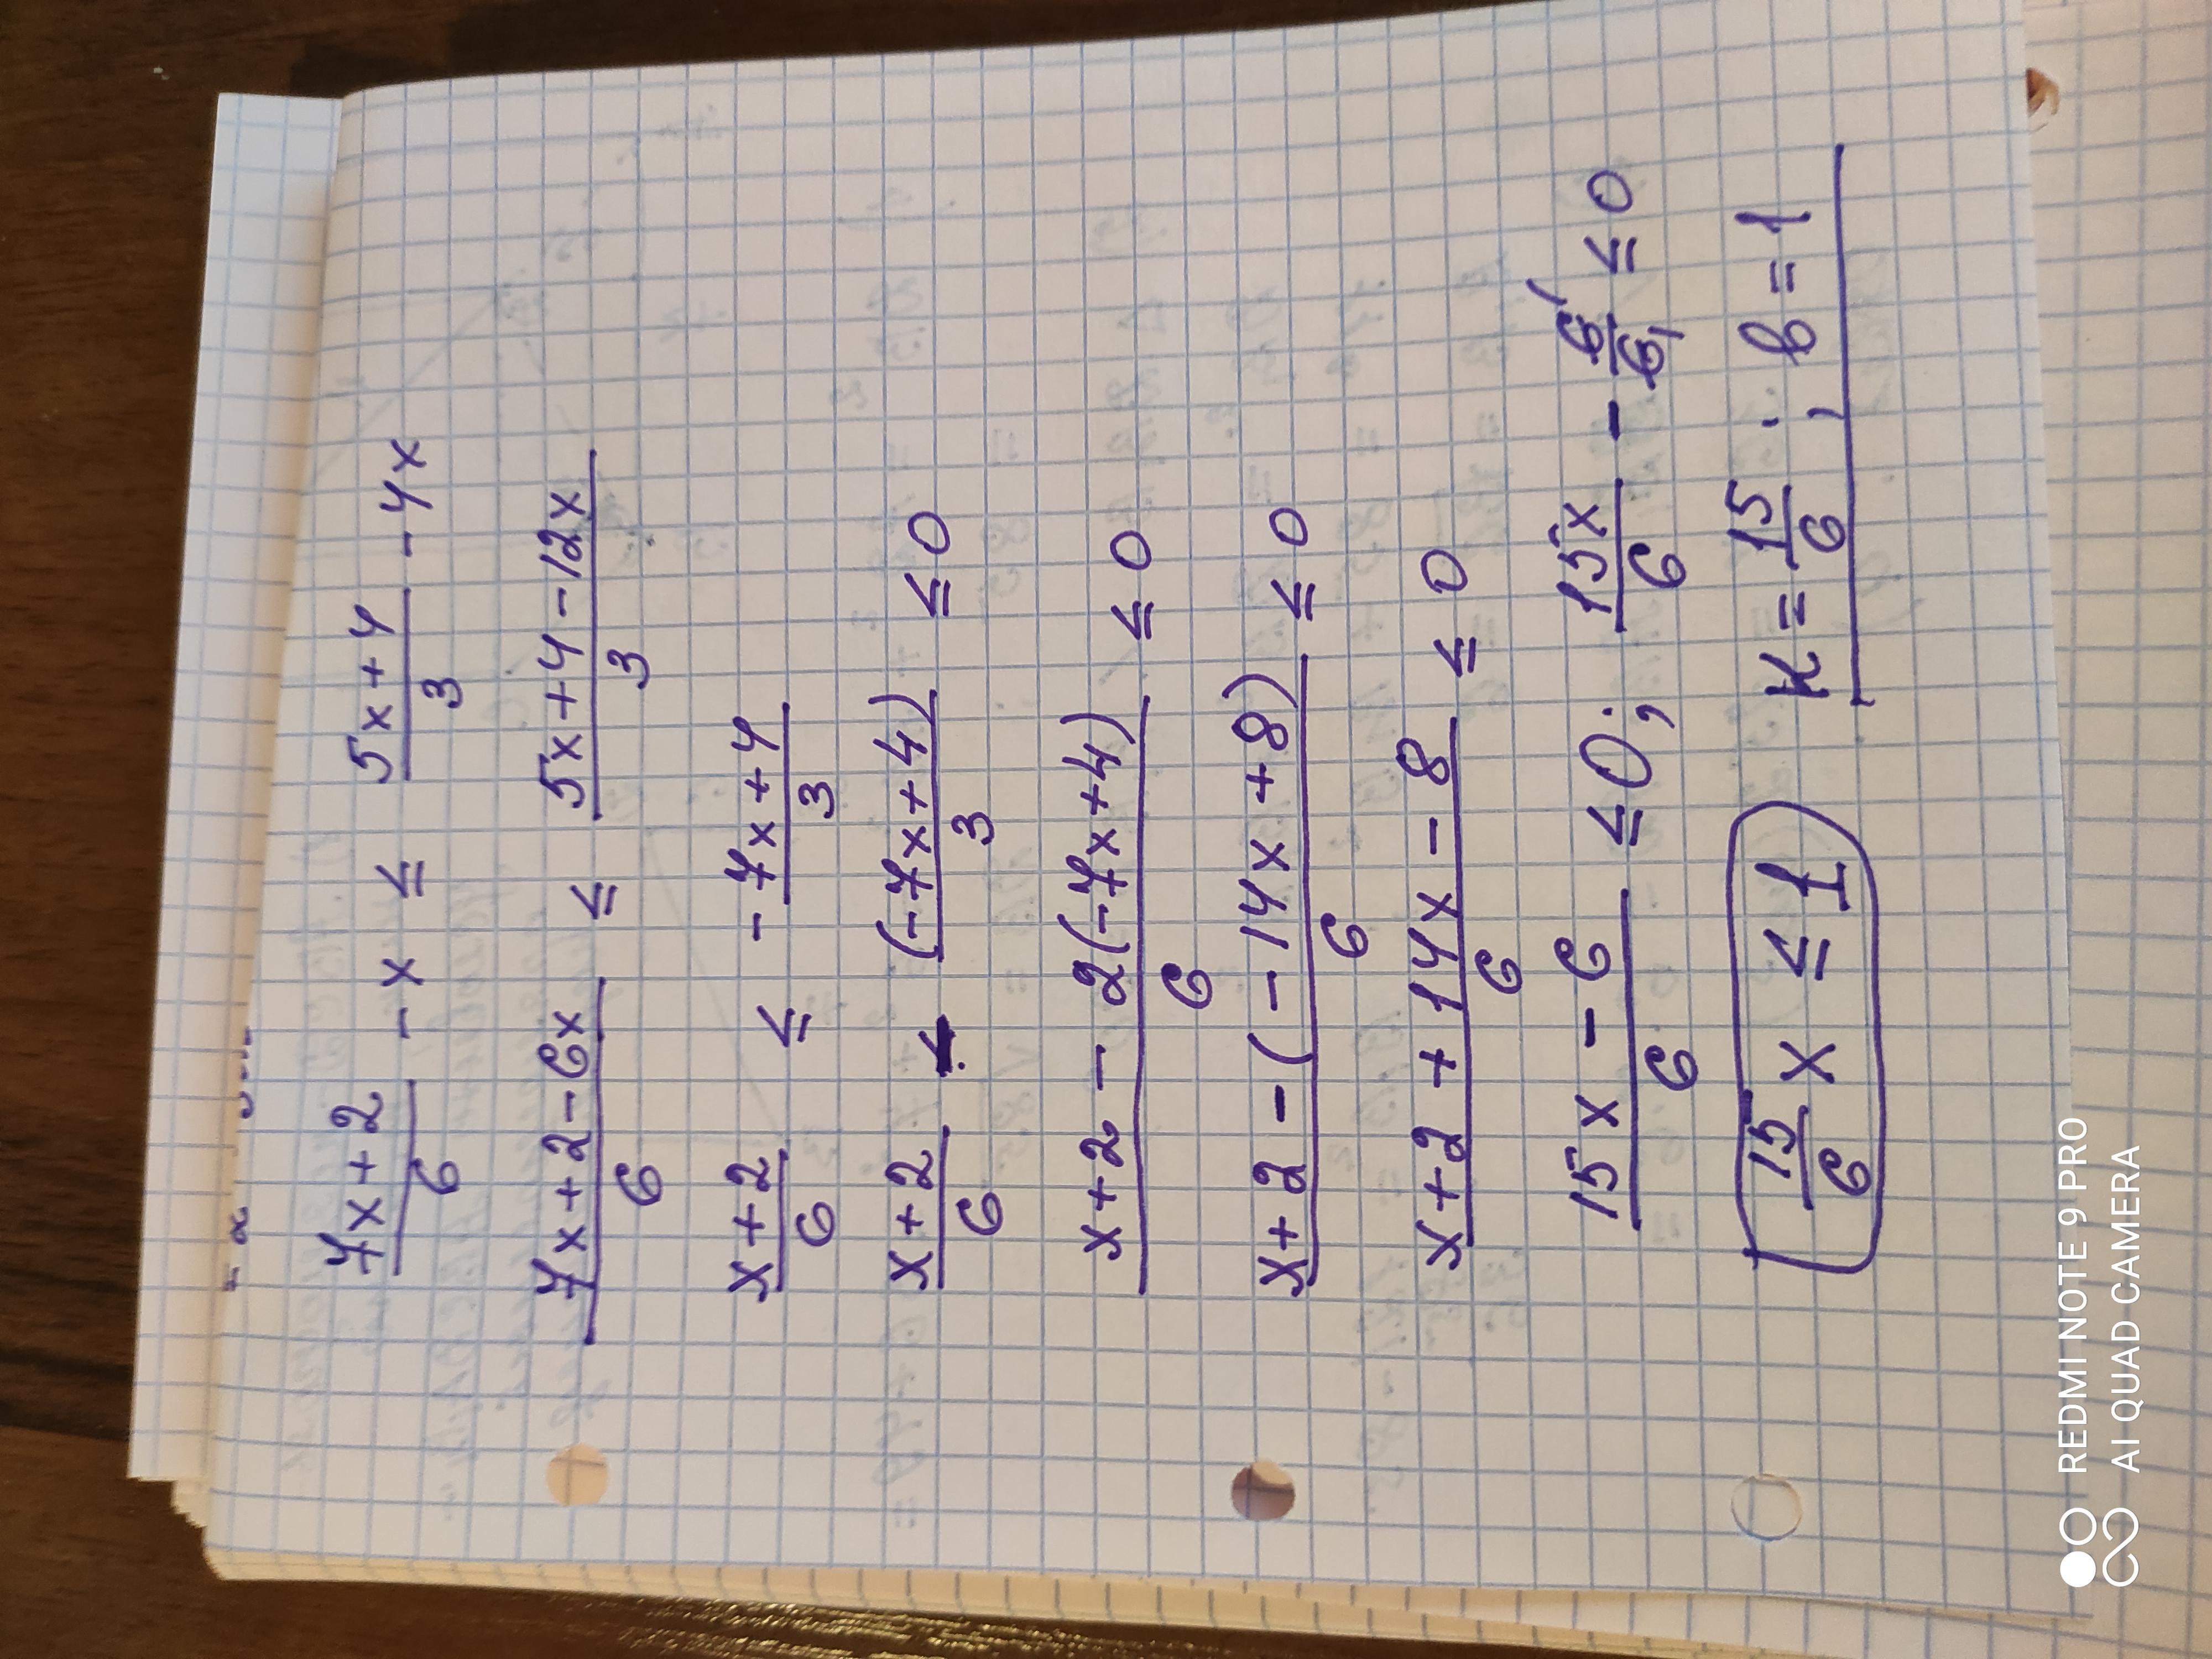 7x+2/6 - x ≤ 5x+4/3 - 4x
7x+2-6x/6 ≤ 5x+4-12x/3
x+2/6 ≤ -7x+4/3
x+2/6 - (-7x+4)/3 ≤ 0
x+2 - 2(-7x+4)/6 ≤ 0
x+2 - (-14x+8)/6 ≤ 0
x+2 + 14x - 8/6 ≤ 0
15x - 6/6 ≤ 0; 15x/6 - 6/6 ≤ 0
15/6 x ≤ 1 K = 15/6; b = 1
REDMI NOTE 9 PRO
AI QUAD CAMERA